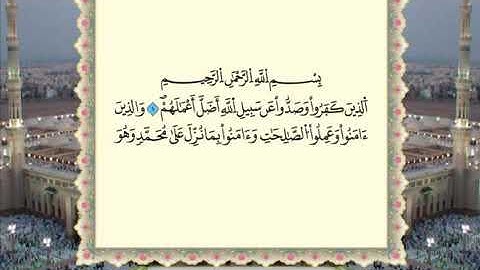 بِسْمِ اللَّهِ الرَّحْمَٰنِ الرَّحِيمِ
الَّذِينَ كَفَرُوا۟ وَصَدُّوا۟ عَن سَبِيلِ اللَّهِ أَضَلَّ أَعْمَٰلَهُمْ ١ وَالَّذِينَ
ءَامَنُوا۟ وَعَمِلُوا۟ الصَّٰلِحَٰتِ وَءَامَنُوا۟ بِمَا نُزِّلَ عَلَىٰ مُحَمَّدٍ وَهُوَ